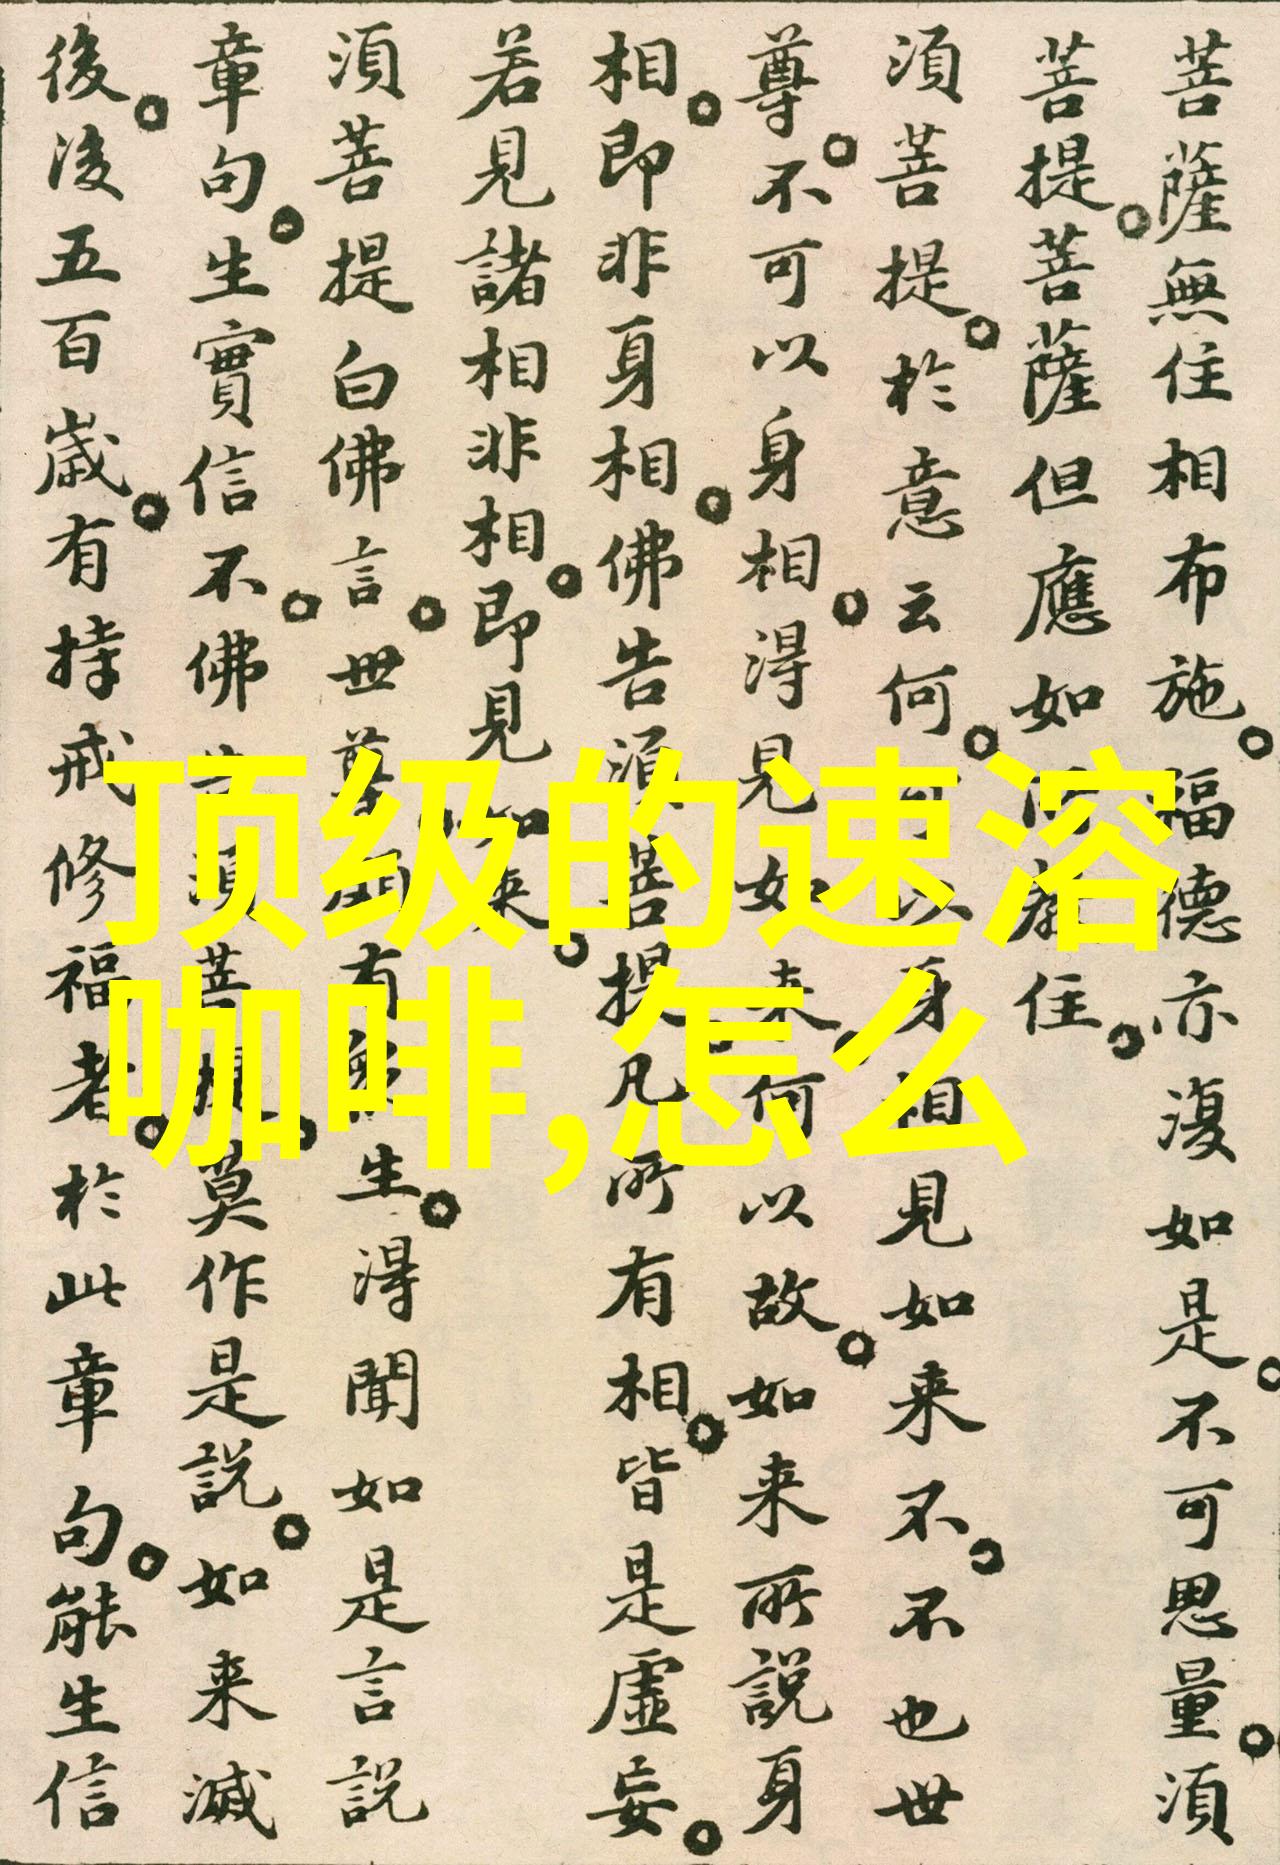 菩薩無住相布施。福德亦復如是。不可思量。須
菩提。菩薩但應如所教住。
須菩提。於意云何。可以身相見如来不。不也世
尊。不可以身相。得見如来。何以故。如来所說身
相。即非身相。佛告須菩提。凡所有相。皆是虛妄。
若見諸相非相。即見如来。
須菩提白佛言。世尊有生。得聞如是言說
章句。生實信不。佛須菩提。莫作是說。如来滅
後。後五百歲。有持戒修福者。於此章句。能生信
顶级的速溶
咖啡,怎么